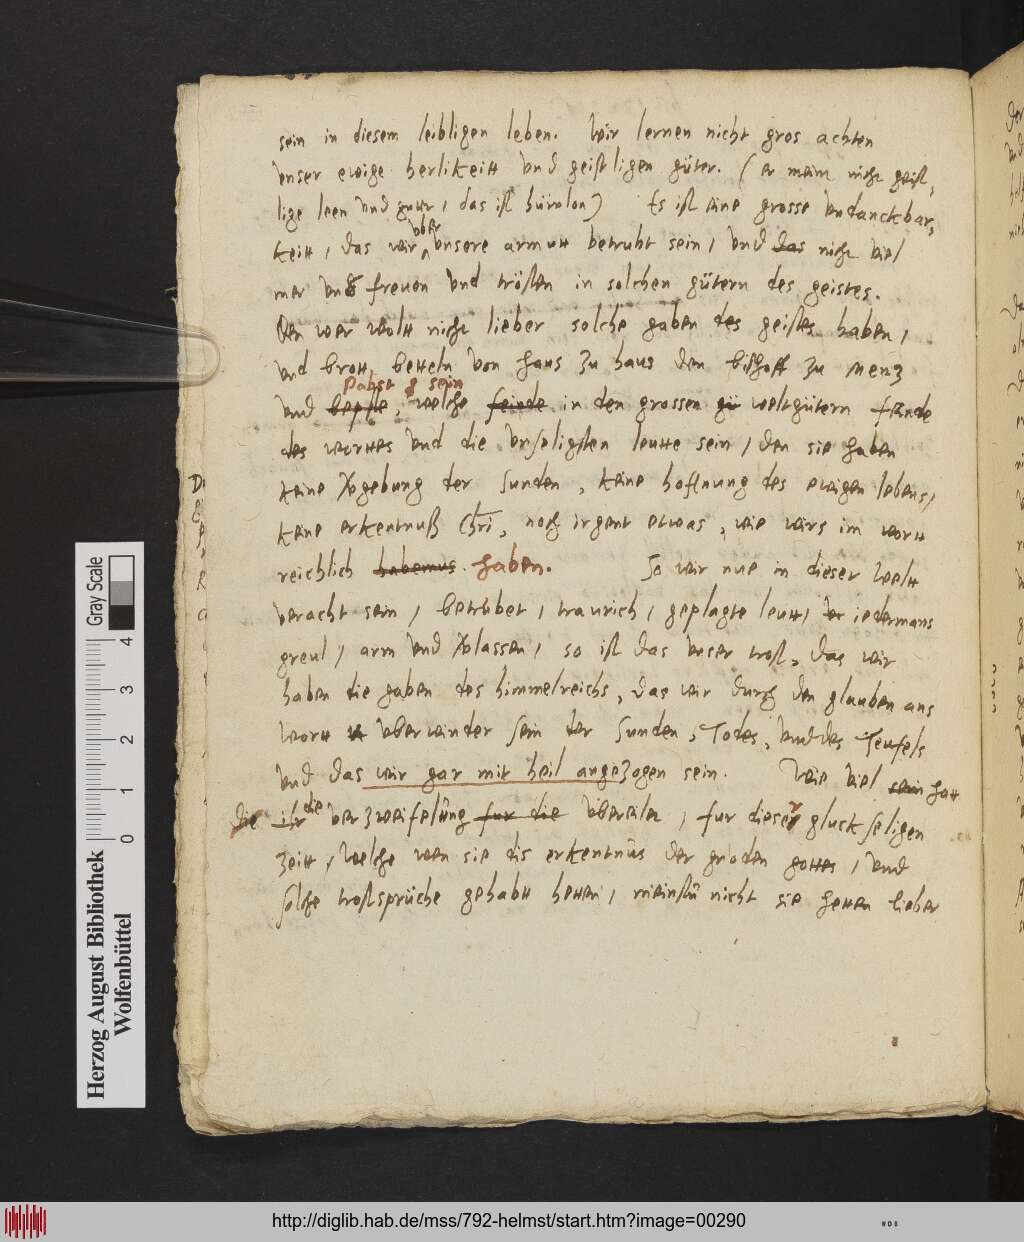 sein in diesem leibligen leben. Wir lernen nicht gros achten
unser ewige herlikeitt und geistligen güter. (er mein nicht geist,
lige leen und guter, das ist hürolon) Es ist eine grosse undanckbar,
keitt, das wir uber unsere armutt betrubt sein, und das nicht viel
mer uns freuen und trösten in solchen gütern des geistes.
Den wer wolt nicht lieber solche gaben des geistes haben,
und brott betteln von haus zu haus den bischoff zu Menz
Pabst & sein
und bepste, welche feinde in den grossen gü weltgütern feinde
des worttes und die unseligsten leutte sein, den sie haben
keine vergebung der sunden, keine hoffnung des ewigen lebens,
keine erkentnuß Chri, noch irgent etwas, wie wirs im wortt
reichlich habemus. haben. So wir nue in dieser Welt
veracht sein, betrübet, traurich, geplagte leutt, der iedermans
greul, arm und verlassen, so ist das unser trost, das wir
haben die gaben des himmelreichs, das wir durch den glauben ans
wortt uberwinder sein der sunden, Todes, und des Teufels
und das wir gar mit heil angezogen sein. Wie viel sein hatt
die ihr die verzweifelung fur die ubereilet, fur dieser gluckseligen
zeitt, welche wen sie dis erkentnus der gnaden gottes, und
solche trostsprüche gehabtt hetten, meinstu nicht sie hetten lieber
Herzog August Bibliothek
Wolfenbüttel
Gray Scale
0 1 2 3 4
http://diglib.hab.de/mss/792-helmst/start.htm?image=00290